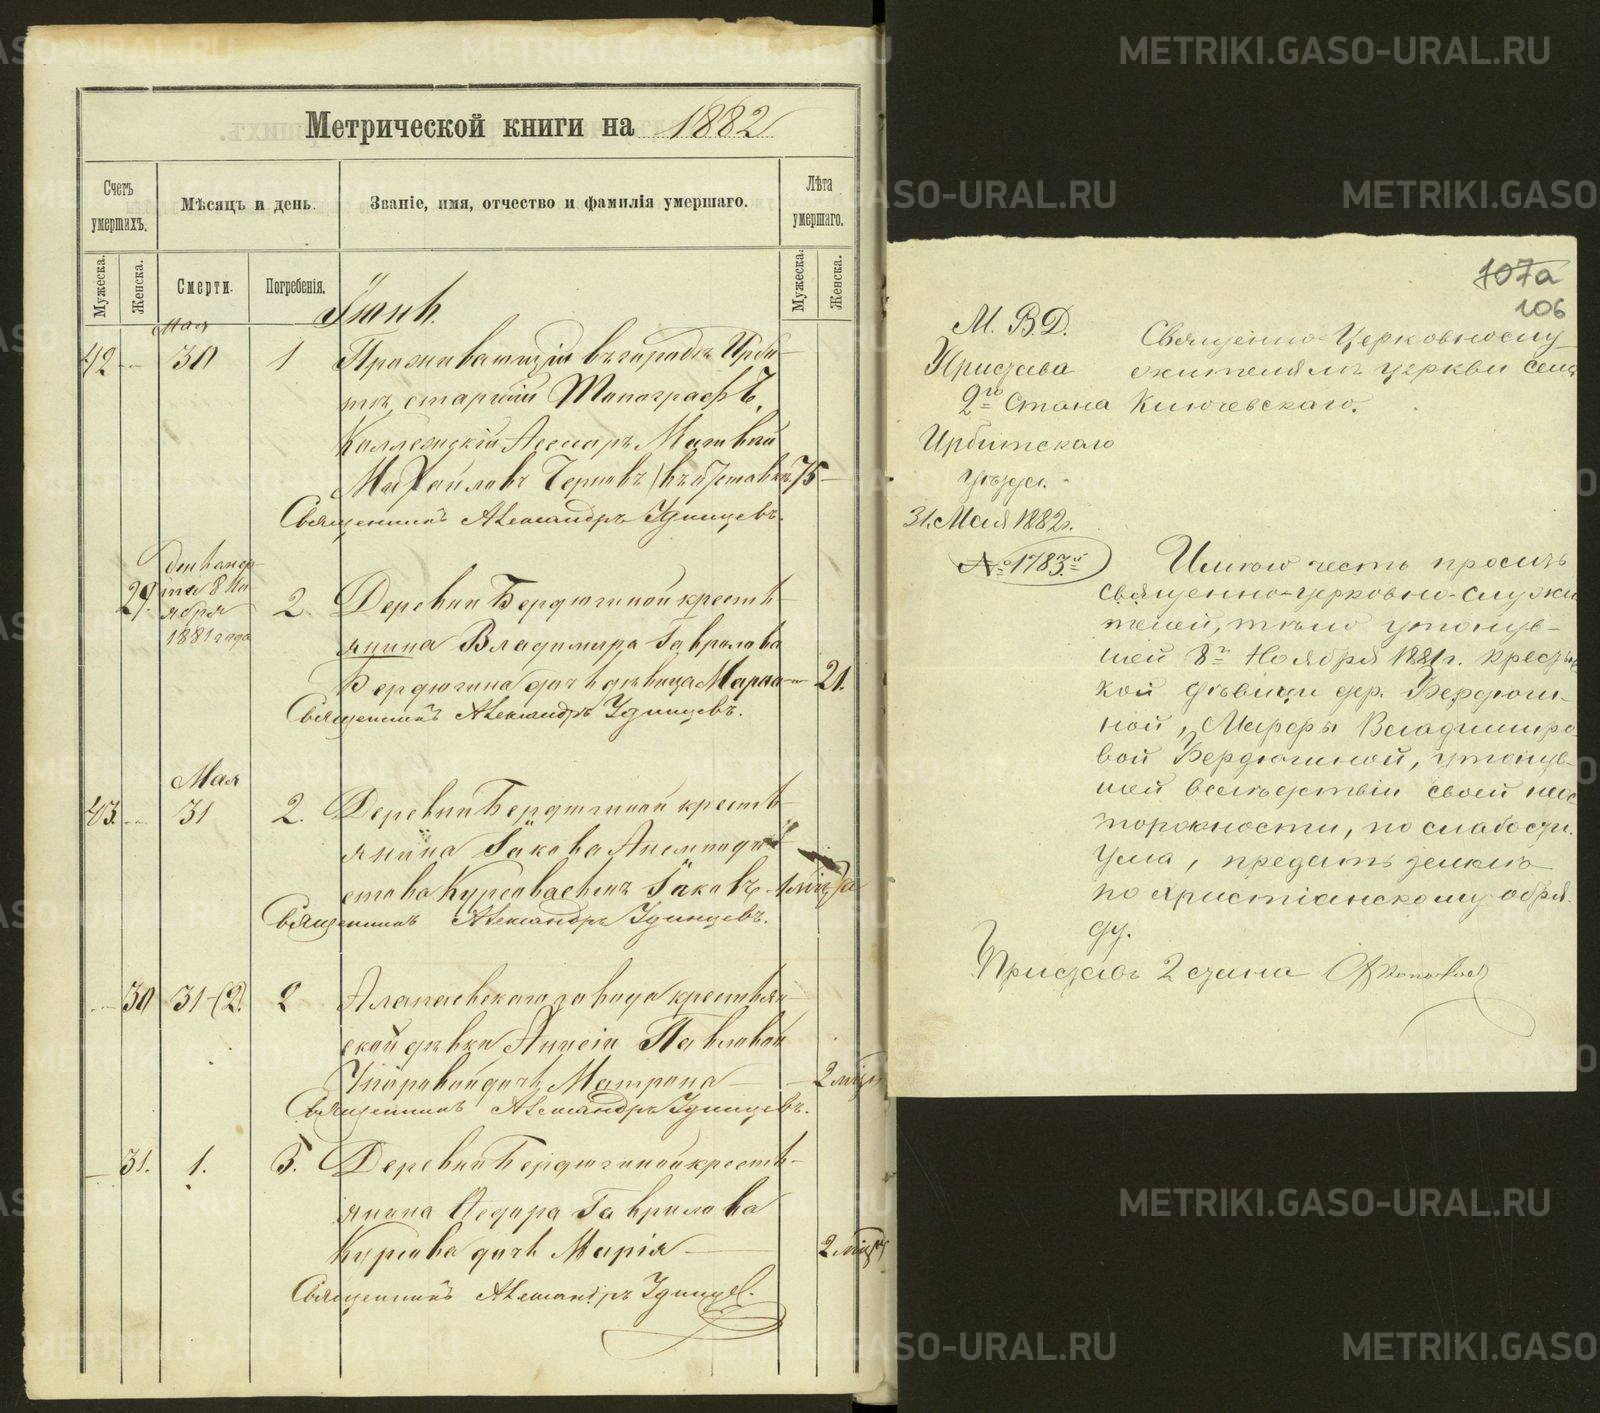 Метрической книги на 1882
Счетъ умершихъ.
Мѣсяцъ и день.
Званіе, имя, отчество и фамилія умершаго.
Лѣта умершаго.
Мужеска.
Женска.
Смерти.
Погребенія.
Мужеска.
Женска.
Іюнь.
Мая
42 — 30 1 Проживающій въ городѣ Ирби-
тѣ, старшій Топографъ,
Коллежскій Асессоръ Матвѣй
Михайловъ Черновъ (въ отставкѣ 75 —
Священникъ Александръ Удинцевъ.
29. 8 Но
ября
1881 года
2. Деревни Бердюгиной кресть-
янина Владимира Гаврилова
Бердюгина дочь дѣвица Марѳа — 21.
Священникъ Александръ Удинцевъ.
Мая
43. — 31 2. Деревни Бердюгиной кресть-
янина Іакова
Іаковъ
Священникъ Александръ Удинцевъ.
— 30 31 (2. 2 Алапаевскаго завода крестьян-
ской дѣвки Анисіи Павловой
дочь Матрона — — 2 мѣс
Священникъ Александръ Удинцевъ.
— 31. 1. Деревни Бердюгиной кресть-
янина Ѳедора Гаврилова
дочь Марія — 2 мѣс
Священникъ Александръ Удинцевъ.
107а
106
М. В. Д.
Пристава
2го Стана
Ирбитскаго
уѣзда.
31. Мая 1882г.
№ 1783й
Священно-Церковнослу
жителямъ церкви села
Ключевскаго.
Имѣю честь просить
священно-церковно-служи
телей, тѣло утонув-
шей 8го Ноября 1881г. крестьян
кой дѣвицы дер. Бердюги-
ной, Марѳы Владиміро
вой Бердюгиной, утонув-
шей вслѣдствіи своей неос
торожности, по слабости
ума, предать землѣ
по христіанскому обря-
ду.
Приставъ 2 стана
METRIKI.GASO-URAL.RU